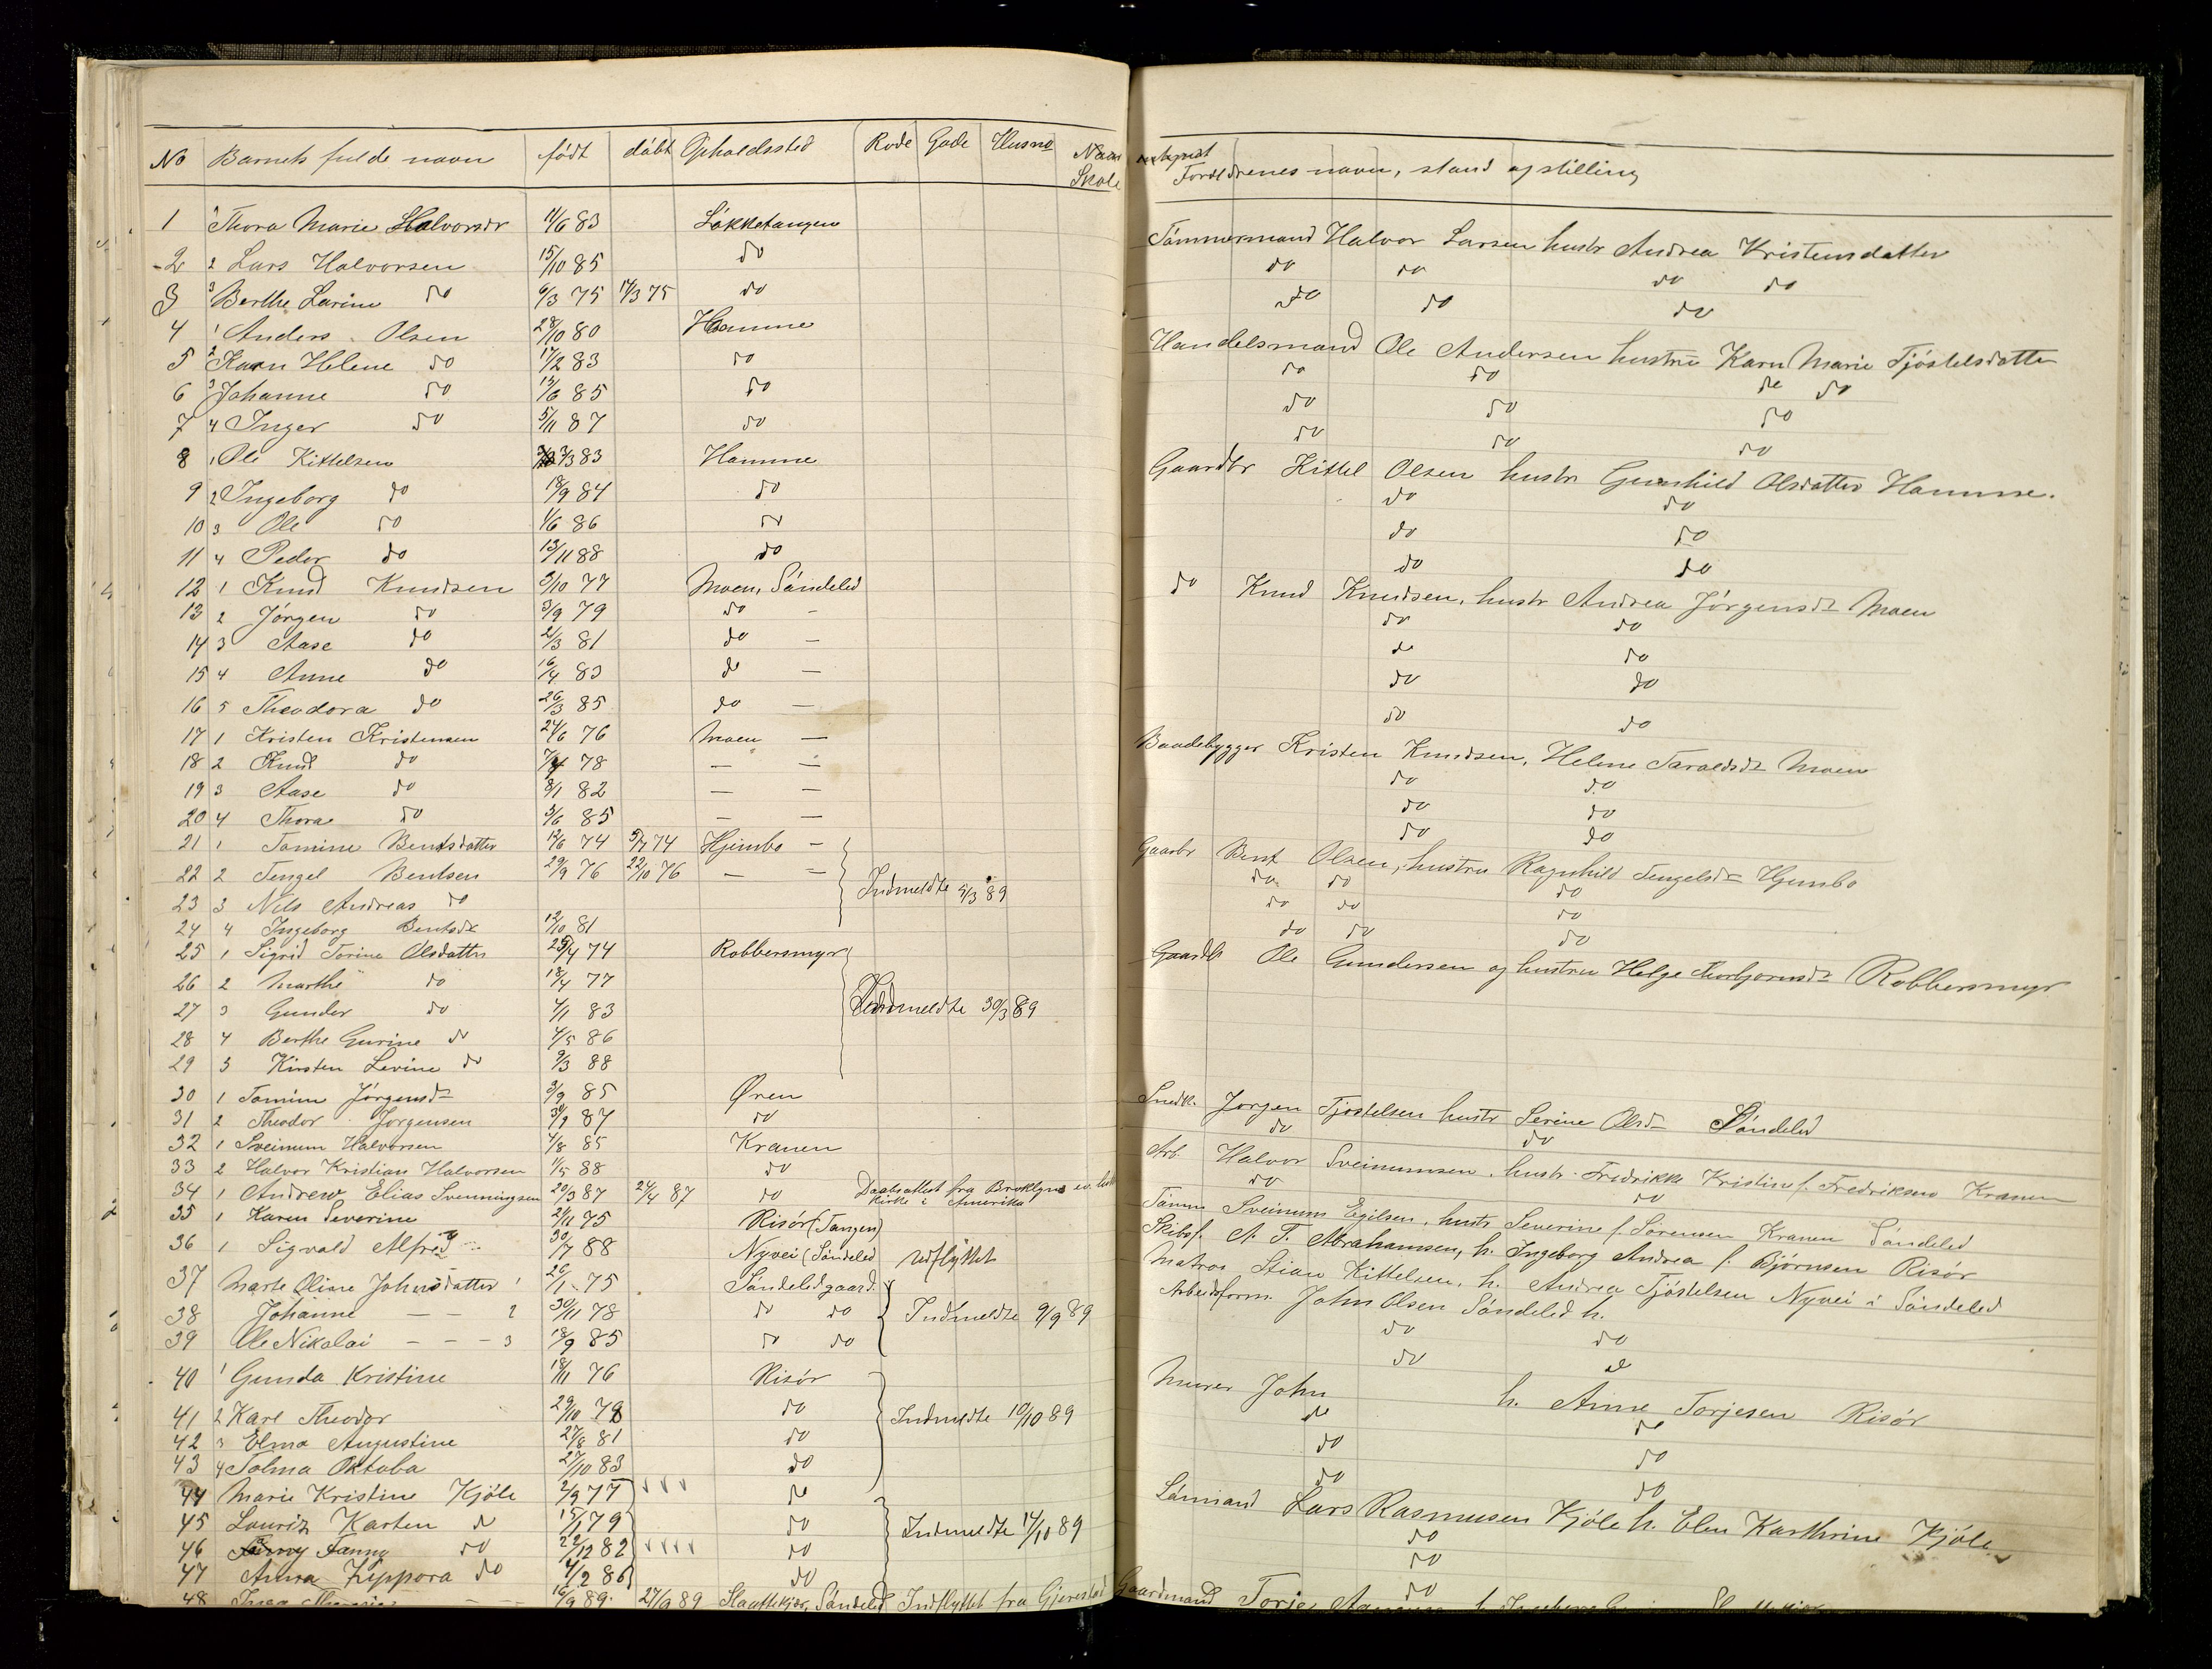 No Barnets fulde navn født døbt Opholdssted Rode Gade Husno
Skole
Forældrenes navn, stand og stilling
1 1 Thora Marie Halvorsdr 11/6 83 Løkketangen
2 2 Lars Halvorsen 15/10 85 do
3 3 Berthe Larine do 6/3 75 14/3 75 do
4 1 Anders Olsen 28/10 80 Hamme
5 2 Karn Helene do 17/2 83 do
6 3 Johanne do 13/6 85 do
7 4 Inger do 5/11 87 do
8 1 Ole Kittelsen 7/3 83 Hamme
9 2 Ingeborg do 18/9 84 do
10 3 Ole do 1/6 86 do
11 4 Peder do 13/11 88 do
12 1 Knud Knudsen 9/10 77 Moen, Søndeled
13 2 Jørgen do 3/9 79 do -
14 3 Aase do 2/3 81 do —
15 4 Anne do 16/4 83 do —
16 5 Theodora do 26/3 85 do —
17 1 Kristen Kristensen 24/6 76 Moen —
18 2 Knud do 78 — —
19 3 Aase do 8/1 82 — —
20 4 Thora do 3/6 85 — —
21 1 Tomine Bentsdatter 12/6 74 5/7 74 Hjembo —
22 2 Tengel Bentsen 29/9 76 22/10 76 — —
Indmeldte 4/3 89
23 3 Nels Andreas do
24 4 Ingeborg Bentsdr 12/10 81
25 1 Sigrid Torine Olsdatter 25/4 74 Robbersmyr
26 2 Marthe do 18/4 77
27 3 Gunder do 4/1 83
Indmeldte 30/3 89
28 4 Berthe Gurine do 4/5 86
29 5 Kirsten Levine do 9/3 88
30 1 Tomine Jørgensdr 3/9 85 Øren
31 2 Theodor Jørgensen 30/9 87 do
32 1 Sveinum Halvorsen 4/8 85 Kranen
33 2 Halvor Kristian Halvorsen 11/5 88 do
34 1 Andrew Elias Svenningsen 20/3 87 24/4 87 do Daabsattest fra Broklyns ev. luth
kirke i Amerika
35 1 Karen Severine 21/11 75 Risør (Tangen)
36 1 Sigvald Alfred 30/7 88 Nyvei (Søndeled udflyttet
37 Marte Oline Johnsdatter 1 26/1 75 Søndeledgaard
38 Johanne — — 2 30/11 78 do do Indmeldte 9/9 89
39 Ole Nikolai — — - 3 18/9 85 do do
40 1 Gunda Kristine 18/11 76 Risør
41 2 Karl Theodor 29/10 78 do Indmeldte 10/10 89
42 3 Elma Augustine 27/8 81 do
43 4 Tolma Oktaba 27/10 83 do
44 Marie Kristine Kjøle 2/9 77 do
45 Lauriz Karten do 15/1 79 do Indmeldte 14/10 89
46 Fanny do 22/12 82 do
47 Anna Zippora do 4/2 86 do
48 16/9 89 27/9 89 Slaattekjær, Søndeled Indflyttet fra Gjerestad
Tømmermand Halvor Larsen hustr Andrea Kristensdatter
do do do do
do do do
Handelsmand Ole Andersen hustru Karn Marie Tjøstelsdatter
do do do do
do do do
do do do
Gaardbr Kittel Olsen hustr Gunhild Olsdatter Hamme.
do do
do do
do do
do Knud Knudsen, hustr Andrea Jørgensdr Moen
do do
do do
do do
do do
Baadebygger Kristen Knudsen, Helene Taraldsdr Moen
do do
do do
do do
Gaarbr Bent Olsen, hustru Ragnhild Tengelsdr Hjembo
do do do
do do do
do do do
Gaardb Ole Gundersen og hustru Helge Thorbjørnsdr Robbersmyr
Snedk. Jørgen Tjøstelsen hustr Serine Olsdr Søndeled
do do
Arb. Halvor Sveinumsen, hustr. Fredrikke Kristine f. Fredriksen Kranen
do do
Tømm Sveinum Egilsen, hustr Severine f. Sørensen Kranen Søndeled
Skibsf. A. T. Abrahamsen, h. Ingeborg Andrea f. Bjørnsen Risør
Matros Stian Kittelsen, h. Andrea Tjøstelsen Nyvei i Søndeled
Arbeidsform. John Olsen Søndeled h.
do do
do do
Murer John h. Anne Torjesen Risør
do do
do do
do do
Sømand Lars Rasmusen Kjøle h. Elen Karthrine Kjøle
do
do
do
Gaardmand Torje